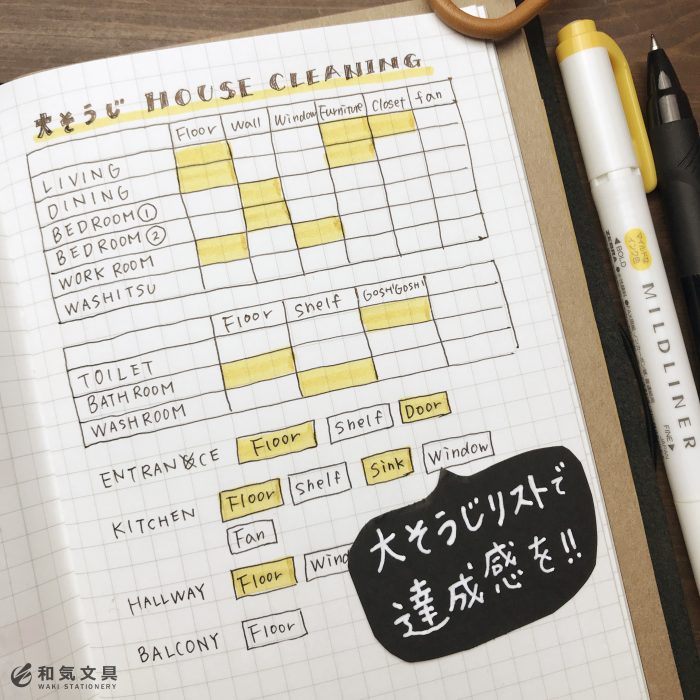 大そうじ HOUSE CLEANING
Floor Wall Window Furniture Closet fan
LIVING
DINING
BEDROOM①
BEDROOM②
WORK ROOM
WASHITSU
Floor Shelf GOSHIGOSHI
TOILET
BATHROOM
WASHROOM
ENTRANCE Floor Shelf Door
KITCHEN Floor Shelf Sink Window
Fan
HALLWAY Floor Wind
BALCONY Floor
大そうじリストで
達成感を!!
◀BOLD
マイルドな
インク色
MILDLINER
FINE▶
和気文具
WAKI STATIONERY